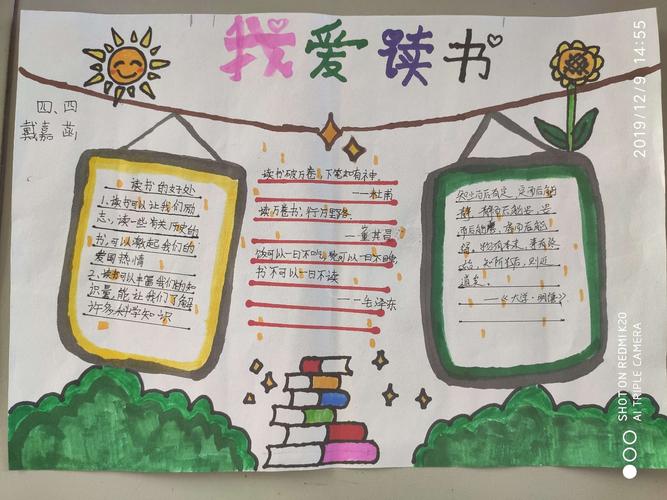 我爱读书
四、四
戴嘉菡
读书的好处
1.读书可以让我们励
志,读一些有关历史的
书,可以激起我们的
爱国热情
2.读书可以丰富我们的知
识量,能让我们了解
许多科学知识
读书破万卷,下笔如有神。
——杜甫
读万卷书,行万里路。
——董其昌
饭可以一日不吃,觉可以一日不睡
书不可以一日不读
——毛泽东
知止而后有定,定而后能
静,静而后能安,安
而后能虑,虑而后能
得。物有本末,事有终
始。知所先后,则近
道矣。
——《大学·明德》
2019/12/9 14:55
SHOT ON REDMI K20
AI TRIPLE CAMERA